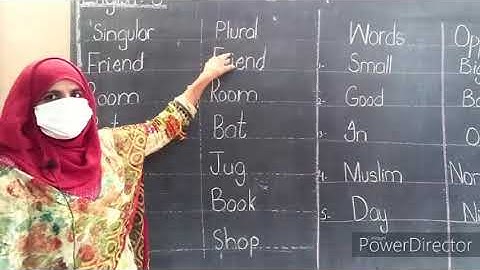 Singular Plural Words Opp
Friend Friend 1- Small Big
Room Room 2- Good
Bat 3- In
Jug 4- Muslim Non
Book 5- Day Ni
Shop
PowerDirector